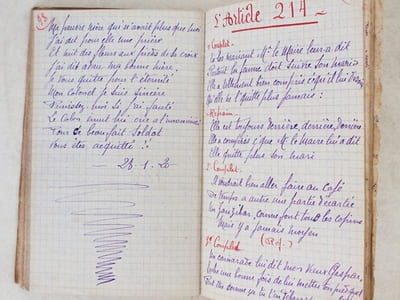 93
Ma pauvre mère qui n'avait plus que moi
J'ai dit pour elle une prière
Et mit des fleurs aux pieds de la croix
J'ai dit adieu ma bonne mère,
Je vous quitte pour l'éternité
Mon Colonel je suis sincère
Punissez-moi si j'ai fauté
Le Colon ému lui crie à l'unanimité
Tout beau fait Soldat
Vous êtes acquitté !!
28-1-20
L'Article 214
1er Couplet.
En les mariant Mr le Maire leur a dit
Partout la femme doit suivre son mari
Elle a tellement bien compris c'qu'il lui
Qu'elle ne l'quitte plus jamais :
Refrain.
Elle est toujours derrière, derrière, derrière
Elle a compris c'que le maire lui a dit
Elle quitte plus son mari
2e Couplet.
Il voudrait bien aller faire au café
De temps à autre une partie d'écarté
Un Zanzibar, comme font tous les copins
Mais y'a jamais moyen
(Ref.)
3e Couplet
Un camarade lui dit mon vieux Gaspar
une bonne fois de lui mettre